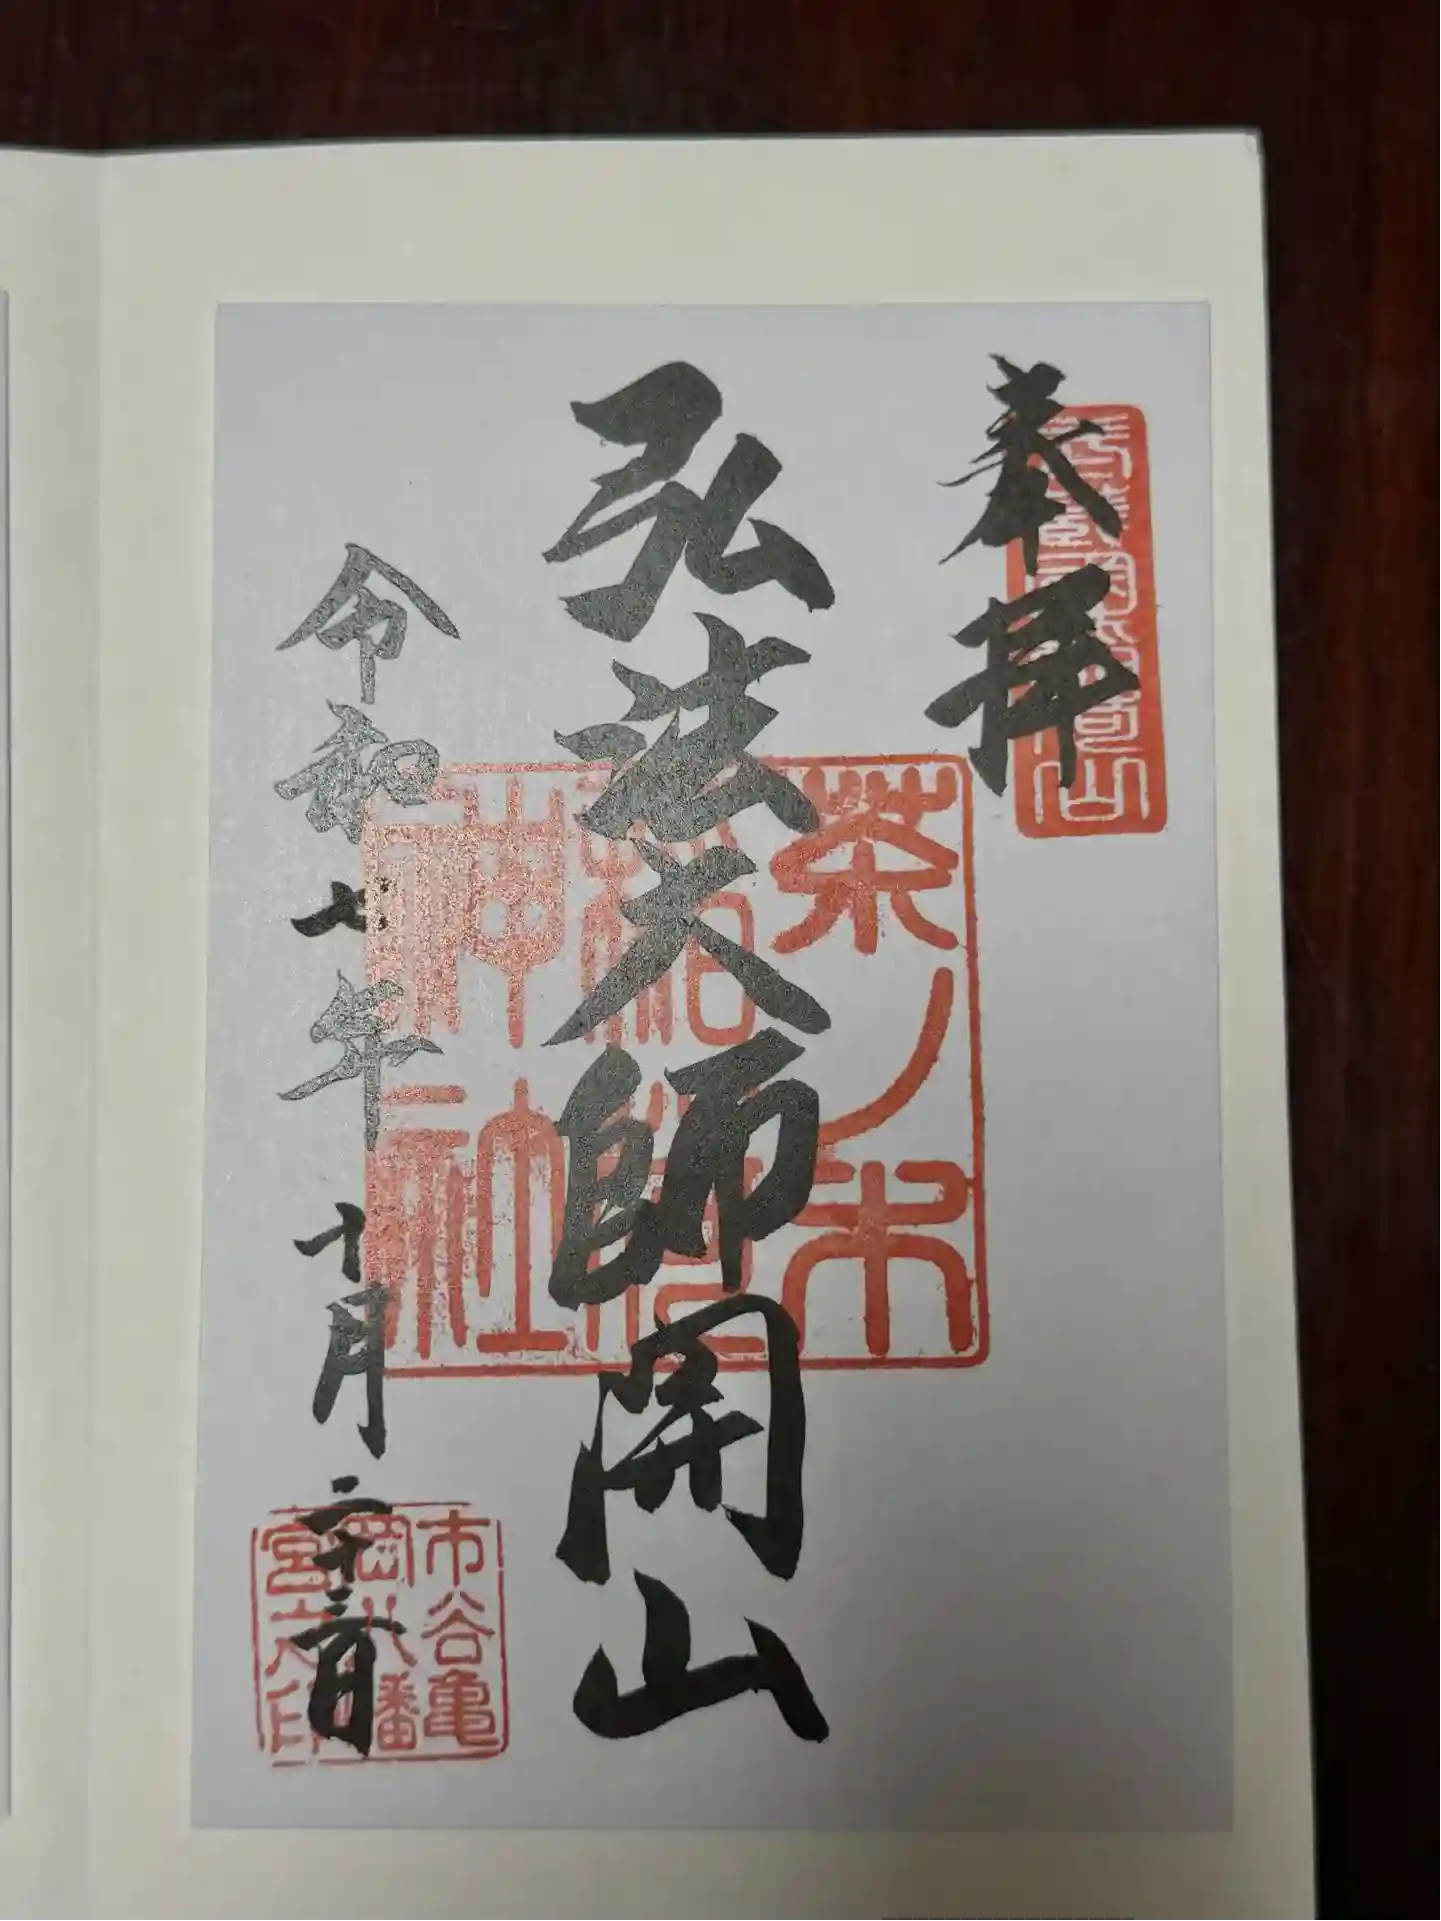 奉拝
弘法大師開山
茶ノ木
稲荷
神社
令和七年十月二十六日
市谷亀
岡八幡
宮之印